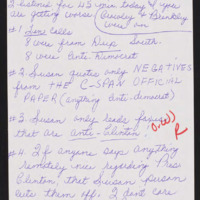 I listened for 45 min today & you
are getting worse (Crowley & Brinkley
were on
#1 Ten calls
8 were from Deep South.
8 were anti-Democrat
#2 Susan quotes only NEGATIVES
from THE C-SPAN OFFICIAL
PAPER (anything anti-democrat)
#3. Susan only reads faxes
that are anti-Clinton.
R
#4. If anyone says anything
remotely nice regarding Pres
Clinton, that Susan person
cuts them off. I dont care